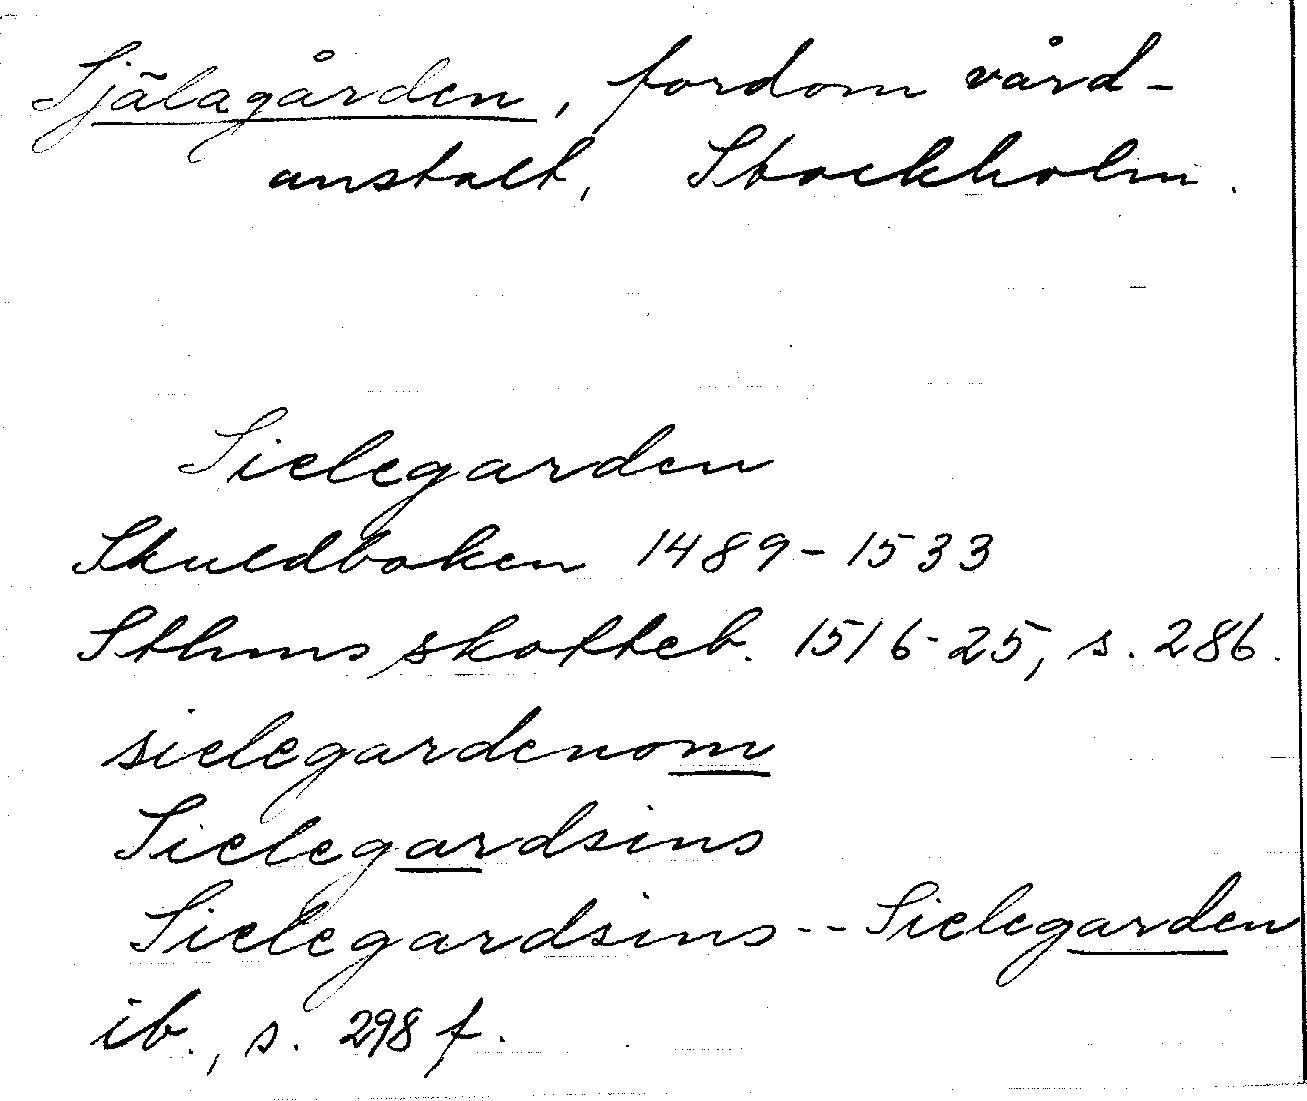 Själagården, fordom vård-
anstalt, Stockholm.
Sielegarden
Skuldboken 1489-1533
Sthms skotteb. 1516-25, s. 286.
sielegardenom
Sielegardsins
Sielegardsins -- Sielegarden
ib., s. 298 f.